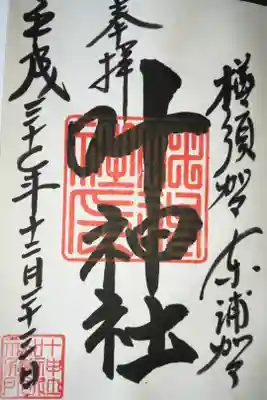 横須賀 東浦賀
奉拝
叶神社
平成二十七年十二月二十三日